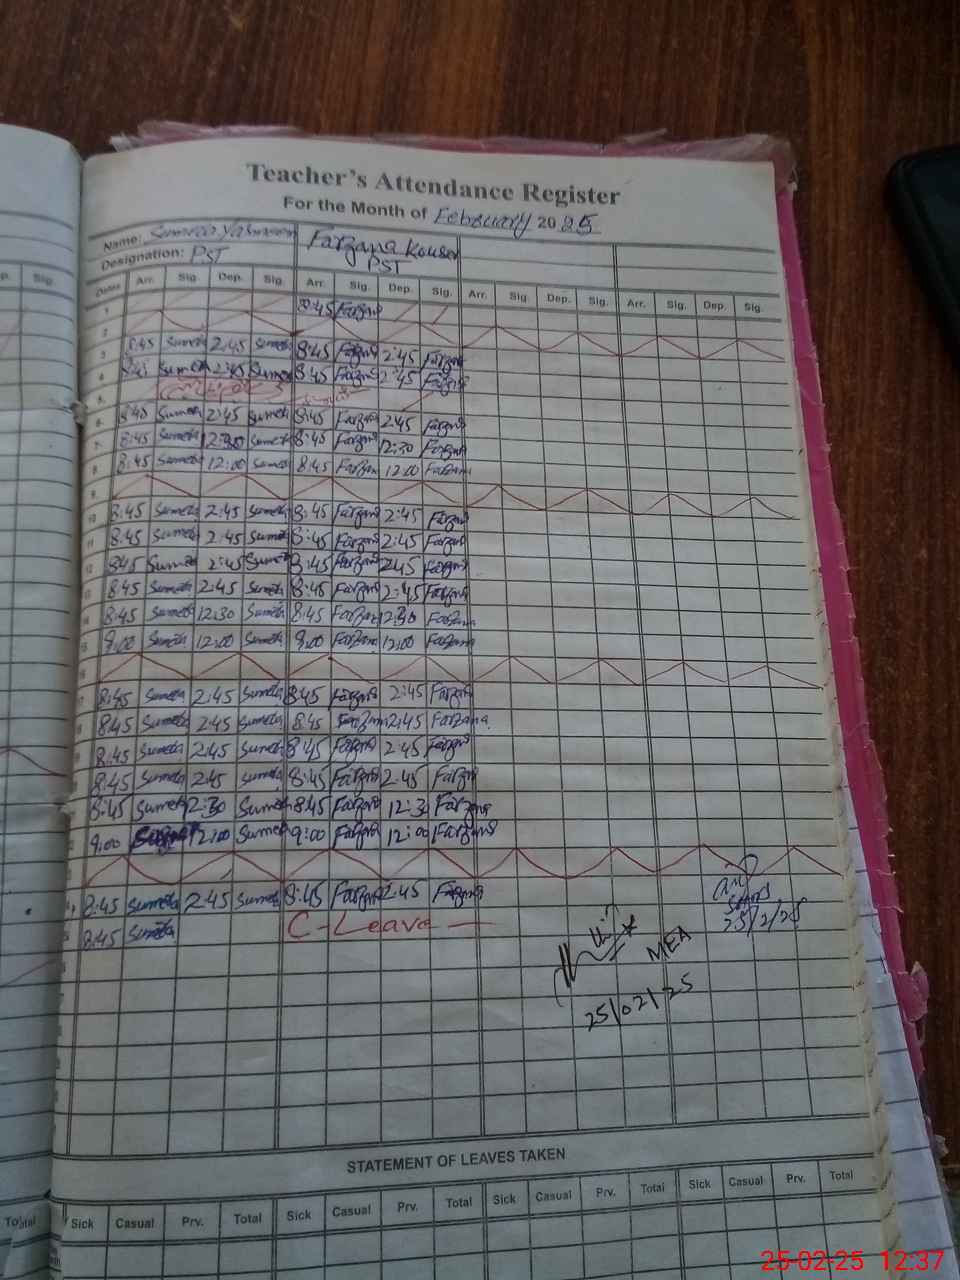 Teacher's Attendance Register
For the Month of February 2025
Name: Yasmeen Farzana Kouser
Designation: PST PST
Dates Arr. Sig. Dep. Sig. Arr. Sig. Dep. Sig. Arr. Sig. Dep. Sig. Arr. Sig. Dep. Sig.
1 8:45 Farzana
2
3 8:45 Sumera 2:45 Sumera 8:45 Farzana 2:45 Farzana
4 8:45 Sumera 2:45 Sumera 8:45 Farzana 2:45 Farzana
5
6 8:45 Sumera 2:45 Sumera 8:45 Farzana 2:45 Farzana
7 8:45 Sumera 12:30 Sumera 8:45 Farzana 12:30 Farzana
8 8:45 Sumera 12:00 Sumera 8:45 Farzana 12:00 Farzana
9
10 8:45 Sumera 2:45 Sumera 8:45 Farzana 2:45 Farzana
11 8:45 Sumera 2:45 Sumera 8:45 Farzana 2:45 Farzana
12 8:45 Sumera 2:45 Sumera 8:45 Farzana 2:45 Farzana
13 8:45 Sumera 2:45 Sumera 8:45 Farzana 2:45 Farzana
14 8:45 Sumera 12:30 Sumera 8:45 Farzana 12:30 Farzana
15 9:00 Sumera 12:00 Sumera 9:00 Farzana 12:00 Farzana
16
17 8:45 Sumera 2:45 Sumera 8:45 Farzana 2:45 Farzana
8:45 Sumera 2:45 Sumera 8:45 Farzana 2:45 Farzana
8:45 Sumera 2:45 Sumera 8:45 Farzana 2:45 Farzana
8:45 Sumera 2:45 Sumera 8:45 Farzana 2:45 Farzana
8:45 Sumera 12:30 Sumera 8:45 Farzana 12:30 Farzana
9:00 12:00 Sumera 9:00 Farzana 12:00 Farzana
8:45 Sumera 2:45 Sumera 8:45 Farzana 2:45 Farzana
8:45 Sumera C-Leave
MEA
25/02/25
25/2/25
STATEMENT OF LEAVES TAKEN
Sick Casual Prv. Total Sick Casual Prv. Total Sick Casual Prv. Total Sick Casual Prv. Total
p. Sig.
Total
25-02-25 12:37